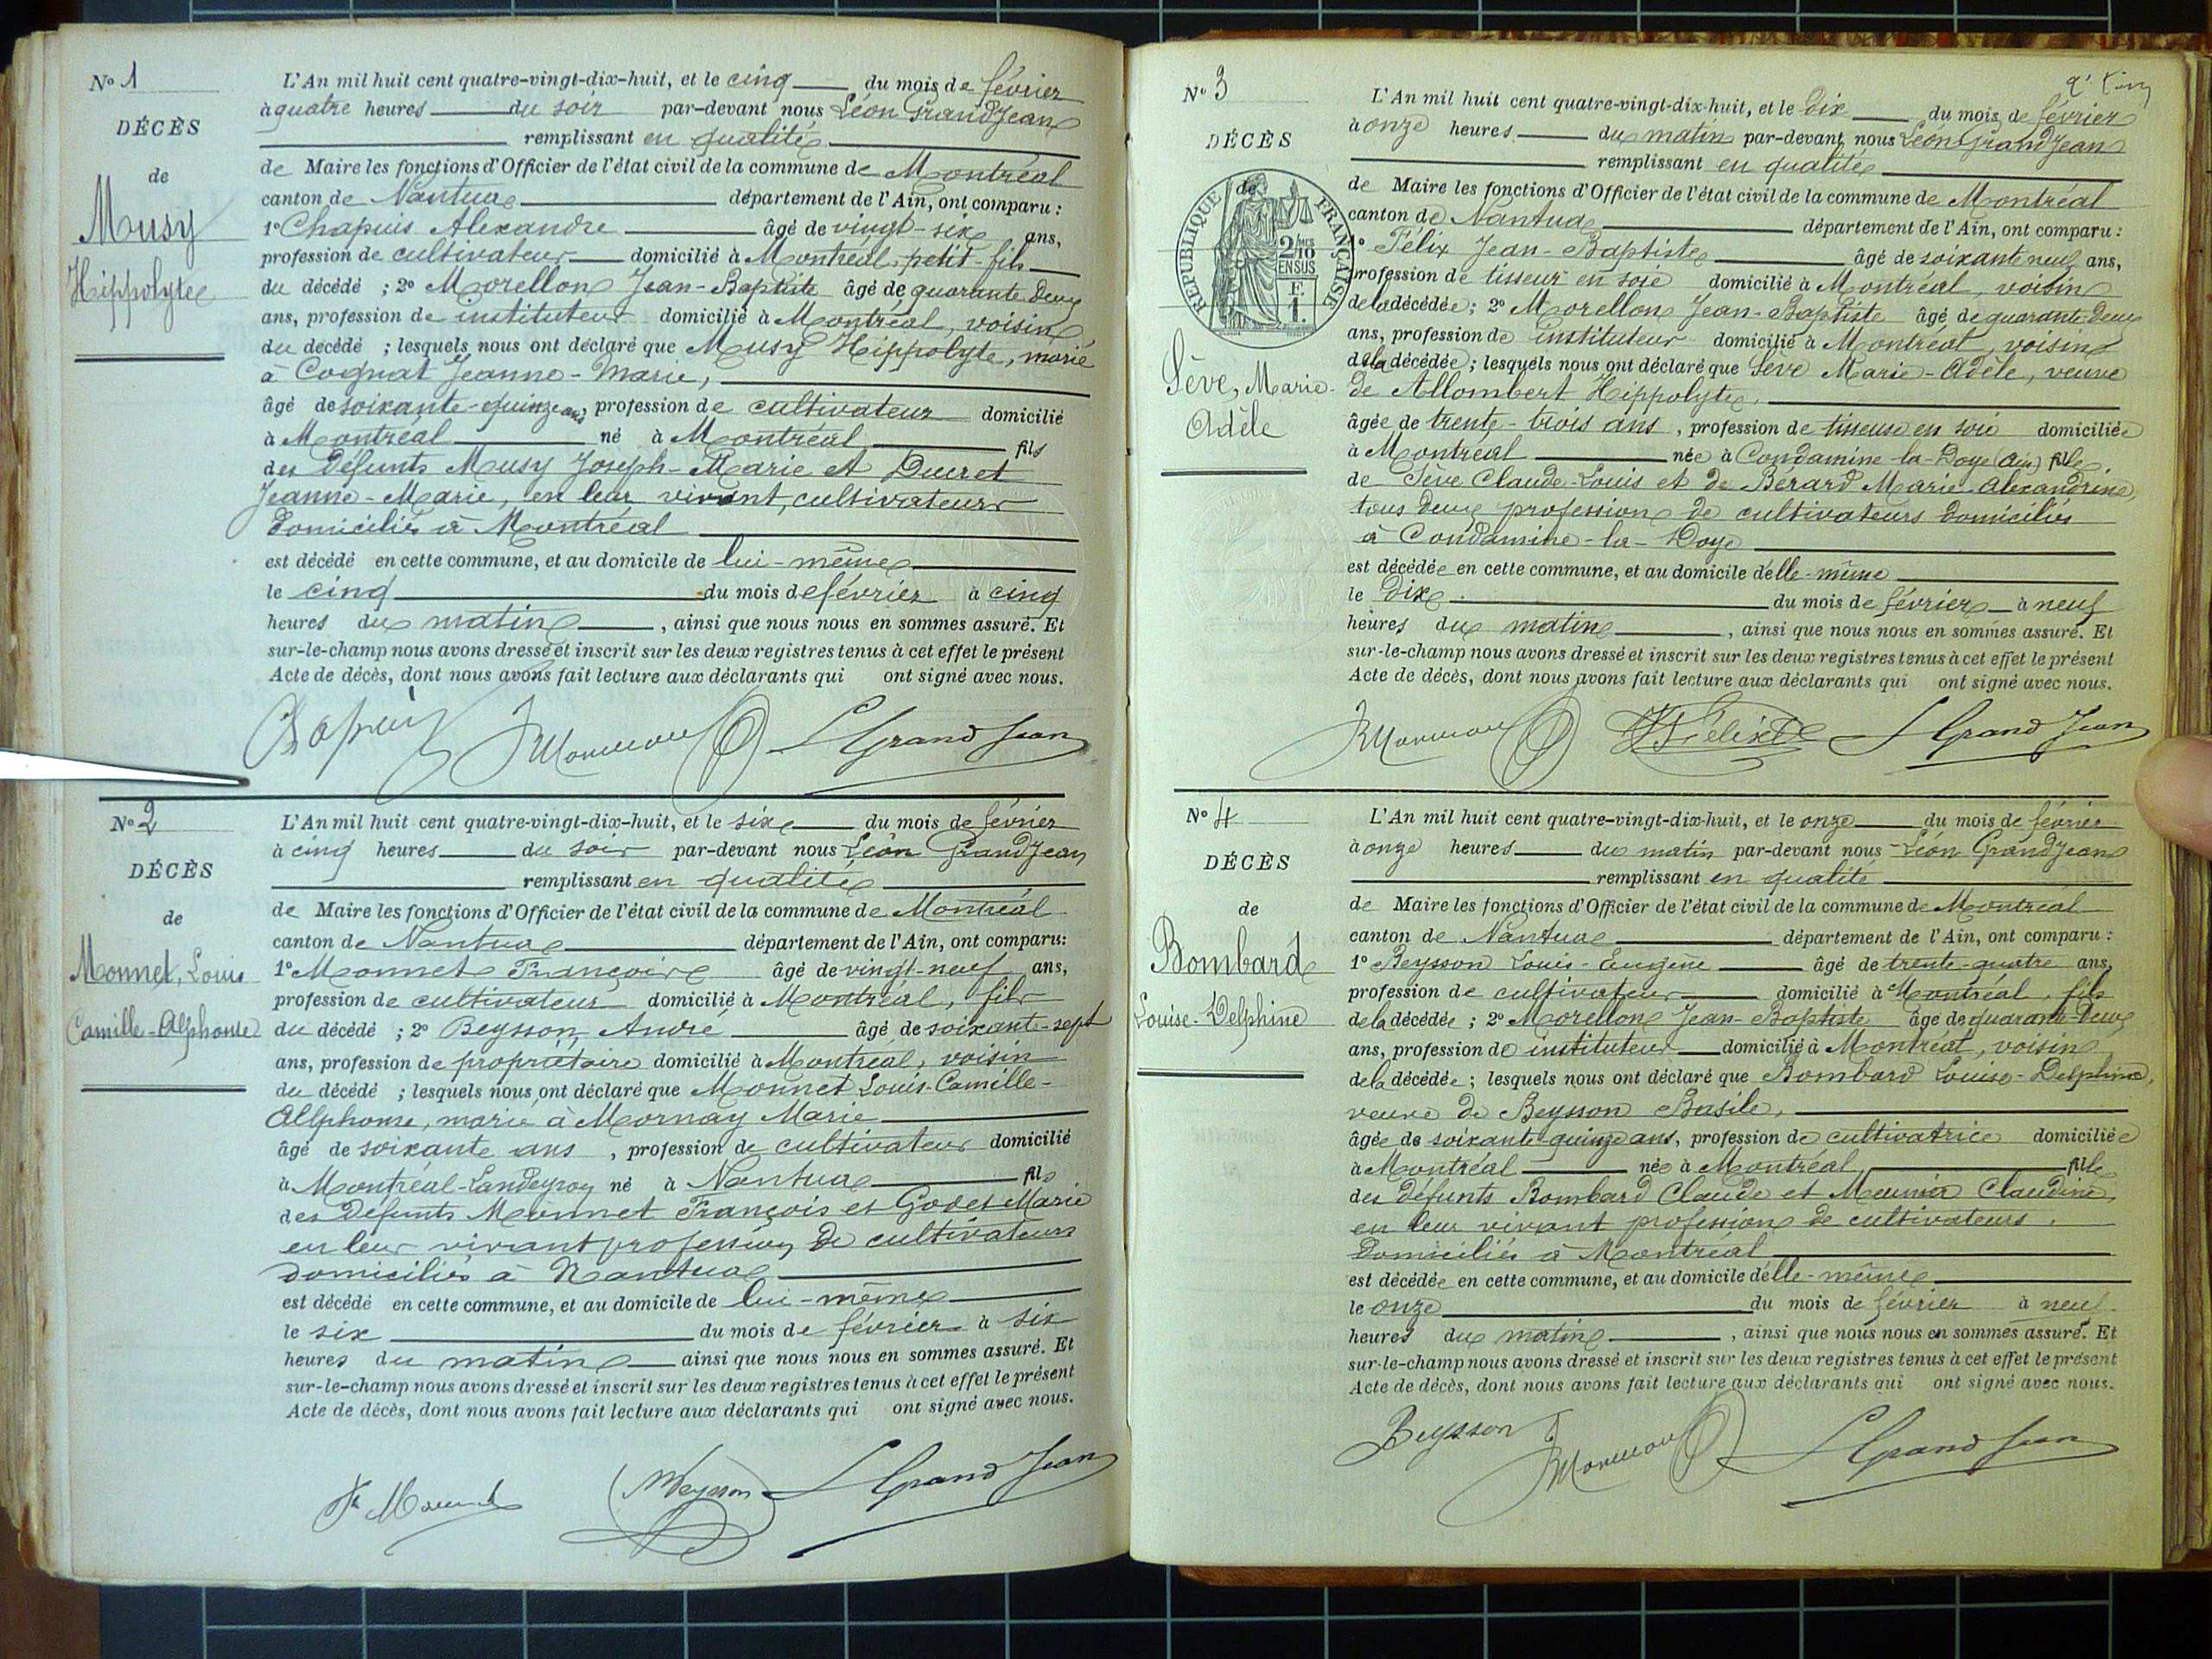 N° 1
DÉCÈS
de
Musy
Hippolyte
L'An mil huit cent quatre-vingt-dix-huit, et le cinq du mois de février
à quatre heures du soir par-devant nous Léon Grandjean
remplissant en qualité
de Maire les fonctions d'Officier de l'état civil de la commune de Montréal
canton de Nantua département de l'Ain, ont comparu :
1° Chapuis Alexandre âgé de vingt-six ans,
profession de cultivateur domicilié à Montréal, petit-fils
du décédé ; 2° Morellon Jean-Baptiste âgé de quarante deux
ans, profession de instituteur domicilié à Montréal, voisin
du décédé ; lesquels nous ont déclaré que Musy Hippolyte, marié
à Cognat Jeanne-Marie,
âgé de soixante-quinze ans, profession de cultivateur domicilié
à Montréal né à Montréal fils
des défunts Musy Joseph-Marie et Ducret
Jeanne-Marie, en leur vivant, cultivateurs
domiciliés à Montréal
est décédé en cette commune, et au domicile de lui-même
le cinq du mois de février à cinq
heures du matin, ainsi que nous nous en sommes assuré. Et
sur-le-champ nous avons dressé et inscrit sur les deux registres tenus à cet effet le présent
Acte de décès, dont nous avons fait lecture aux déclarants qui ont signé avec nous.
Chapuis L Grand Jean
N° 2
DÉCÈS
de
Monnet, Louis
Camille-Alphonse
L'An mil huit cent quatre-vingt-dix-huit, et le six du mois de février
à cinq heures du soir par-devant nous Léon Grandjean
remplissant en qualité
de Maire les fonctions d'Officier de l'état civil de la commune de Montréal
canton de Nantua département de l'Ain, ont comparu :
1° Monnet François âgé de vingt-neuf ans,
profession de cultivateur domicilié à Montréal, fils
du décédé ; 2° Beysson, André âgé de soixante-sept
ans, profession de propriétaire domicilié à Montréal, voisin
du décédé ; lesquels nous ont déclaré que Monnet Louis-Camille-
Allphonse, marié à Mornay Marie
âgé de soixante ans, profession de cultivateur domicilié
à Montréal-Landeyron né à Nantua fils
des défunts Monnet François et Godet Marie
en leur vivant profession de cultivateurs
domiciliés à Nantua
est décédé en cette commune, et au domicile de lui-même
le six du mois de février à six
heures du matin ainsi que nous nous en sommes assuré. Et
sur-le-champ nous avons dressé et inscrit sur les deux registres tenus à cet effet le présent
Acte de décès, dont nous avons fait lecture aux déclarants qui ont signé avec nous.
Beysson L Grand Jean
N° 3
DÉCÈS
de
RÉPUBLIQUE FRANÇAISE
2/10 EN SUS
F.
1.
Sève, Marie-
Adèle
L'An mil huit cent quatre-vingt-dix-huit, et le dix du mois de février
à onze heures du matin par-devant nous Léon Grandjean
remplissant en qualité
de Maire les fonctions d'Officier de l'état civil de la commune de Montréal
canton de Nantua département de l'Ain, ont comparu :
1° Félix Jean-Baptiste âgé de soixante neuf ans,
profession de tisseur en soie domicilié à Montréal, voisin
de la décédée ; 2° Morellon Jean-Baptiste âgé de quarante-deux
ans, profession de instituteur domicilié à Montréal, voisin
de la décédée ; lesquels nous ont déclaré que Sève Marie-Adèle, veuve
de Allombert Hippolyte,
âgée de trente-trois ans, profession de tisseuse en soie domiciliée
à Montréal née à Condamine-la-Doye (Ain) fille
de Sève Claude-Louis et de Berard Marie-Alexandrine,
tous deux profession de cultivateurs domiciliés
à Condamine-la-Doye
est décédée en cette commune, et au domicile d'elle-même
le dix du mois de février à neuf
heures du matin, ainsi que nous nous en sommes assuré. Et
sur-le-champ nous avons dressé et inscrit sur les deux registres tenus à cet effet le présent
Acte de décès, dont nous avons fait lecture aux déclarants qui ont signé avec nous.
Félix L Grand Jean
N° 4
DÉCÈS
de
Bombard
Louise-Delphine
L'An mil huit cent quatre-vingt-dix-huit, et le onze du mois de février
à onze heures du matin par-devant nous Léon Grandjean
remplissant en qualité
de Maire les fonctions d'Officier de l'état civil de la commune de Montréal
canton de Nantua département de l'Ain, ont comparu :
1° Beysson Louis-Eugène âgé de trente-quatre ans,
profession de cultivateur domicilié à Montréal, fils
de la décédée ; 2° Morellon Jean-Baptiste âgé de quarante-deux
ans, profession de instituteur domicilié à Montréal, voisin
de la décédée ; lesquels nous ont déclaré que Bombard Louise-Delphine,
veuve de Beysson Basile,
âgée de soixante quinze ans, profession de cultivatrice domiciliée
à Montréal née à Montréal, fille
des défunts Bombard Claude et Meunier Claudine,
en leur vivant profession de cultivateurs,
domiciliés à Montréal
est décédée en cette commune, et au domicile d'elle-même
le onze du mois de février à neuf
heures du matin, ainsi que nous nous en sommes assuré. Et
sur-le-champ nous avons dressé et inscrit sur les deux registres tenus à cet effet le présent
Acte de décès, dont nous avons fait lecture aux déclarants qui ont signé avec nous.
Beysson L Grand Jean